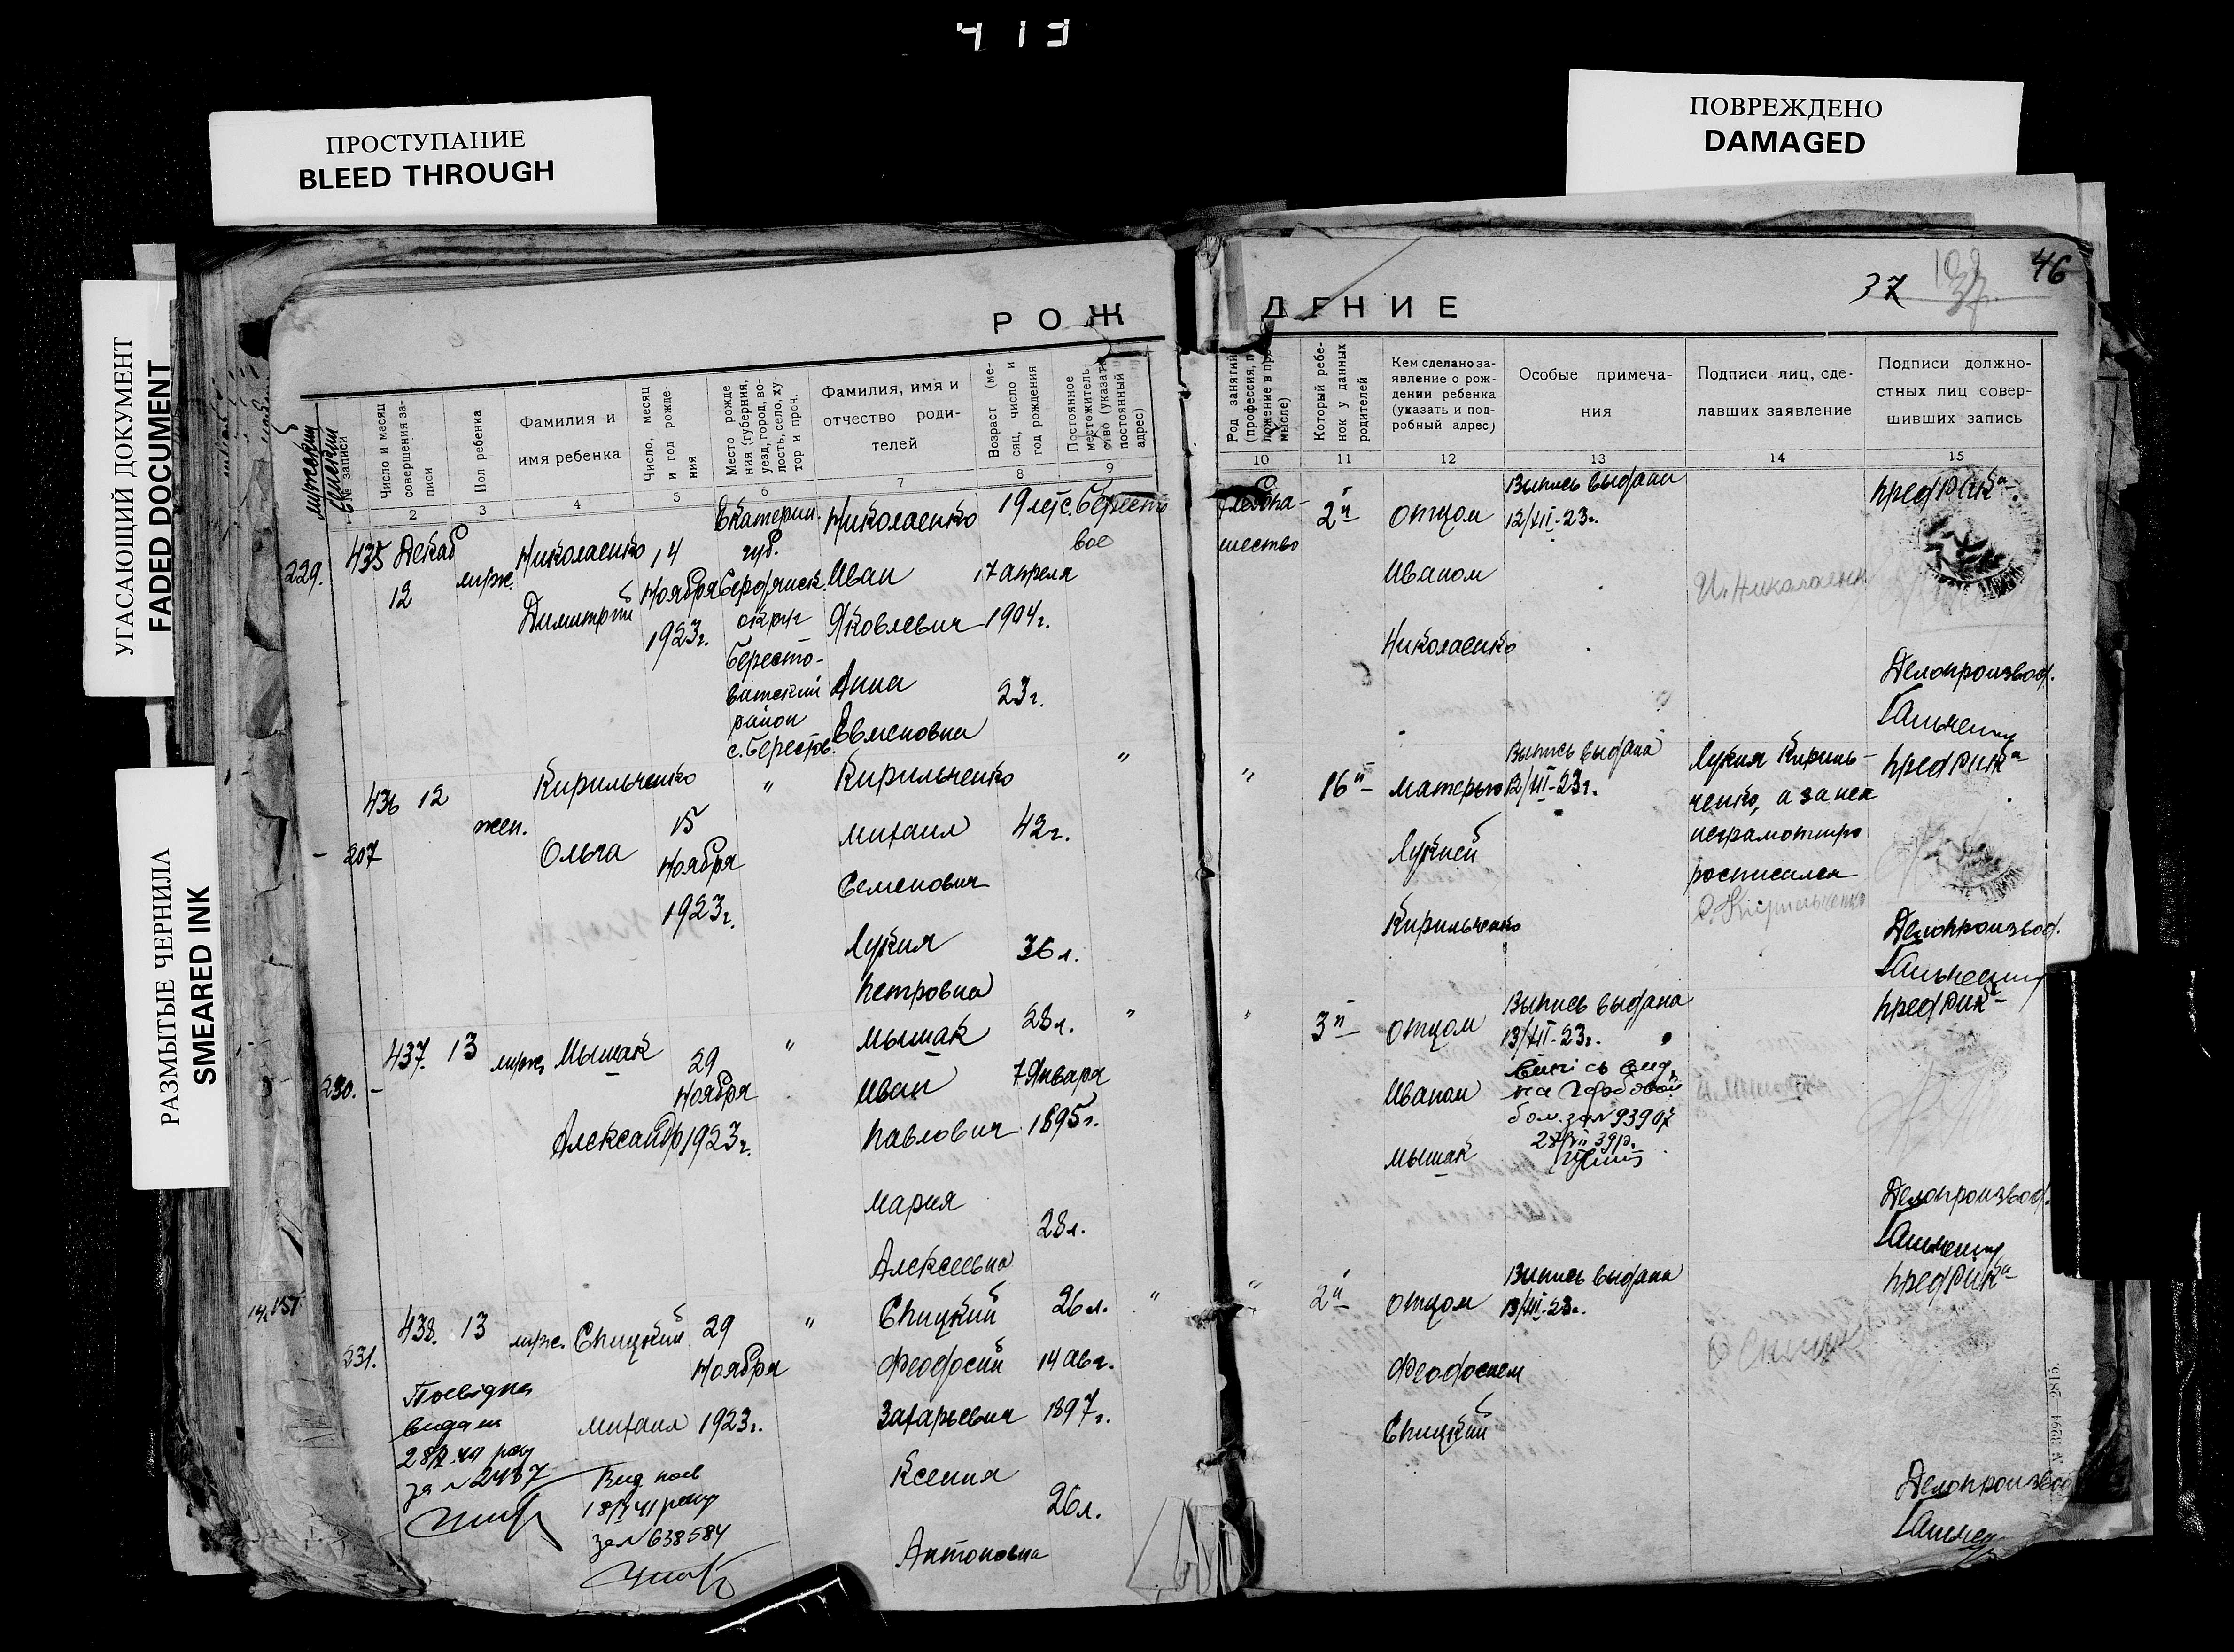 413
ПРОСТУПАНИЕ
BLEED THROUGH
ПОВРЕЖДЕНО
DAMAGED
УГАСАЮЩИЙ ДОКУМЕНТ
FADED DOCUMENT
РАЗМЫТЫЕ ЧЕРНИЛА
SMEARED INK
37
46
РОЖДЕНИЕ
мужский
женский
№ записи
Число и месяц
совершения за-
писи
Пол ребенка
Фамилия и
имя ребенка
Число, месяц
и год рожде-
ния
Место рожде
ния (губерния,
уезд, город, во-
лость, село, ху-
тор и проч.
Фамилия, имя и
отчество роди-
телей
Возраст (ме-
сяц, число и
год рождения
Постоянное
местожитель
ство (указать
постоянный
адрес)
Род занятий
(профессия,
положение в про
мысле)
Который ребе-
нок у данных
родителей
Кем сделано за-
явление о рож-
дении ребенка
(указать и под-
робный адрес)
Особые примеча-
ния
Подписи лиц, сде-
лавших заявление
Подписи должно-
стных лиц совер-
шивших запись
2 3 4 5 6 7 8 9 10 11 12 13 14 15
229.
435 Декаб
12
муж.
Николаенко
Димитрий
14
Ноября
1923г.
Екатерин.
губ.
Бердянск.
округ
Бересто-
ватский
район
с. Берестов.
Николаенко
Иван
Яковлевич
Анна
Евменовна
19 лет
17 апреля
1904г.
23г.
с. Бересто
вое
Хлебопа-
шество
2й
Отцом
Иваном
Николаенко
Выпись выдана
12/XII-23г.
И. Николаенк
пред Рика
Делопроизвод.
207
436 12
жен.
Кирильченко
Ольга
15
Ноября
1923г.
"
Кирильченко
Михаил
Семенович
Лукия
Петровна
42г.
36л.
"
"
16й
Матерью
Лукией
Кирильченко
Выпись выдана
12/XII-23г.
Лукия Кириль-
ченко, а за нея
неграмотную
росписался
Кирильченко
пред Рика
Делопроизвод.
230.
437. 13
муж.
Мышак
Александр
29
Ноября
1923г.
"
Мышак
Иван
Павлович
Мария
Алексеевна
28л.
7 Января
1895г.
28л.
"
"
3й
Отцом
Иваном
Мышак
Выпись выдана
13/XII-23г.
Випісь вид.
на Гербовой
бом. за № 93907
пред Рика
Делопроизвод.
231.
438. 13
муж.
Спицкий
Михаил
29
Ноября
1923г.
"
Спицкий
Феодосий
Захарьевич
Ксения
Антоновна
26л.
14 Авг.
1897г.
26л.
"
"
2й
Отцом
Феодосием
Спицкий
Выпись выдана
13/XII-23г.
пред Рика
Делопроизвод
Посвідка
видана
за № 2487
Вид. посв
18/I 41 року
за № 638584